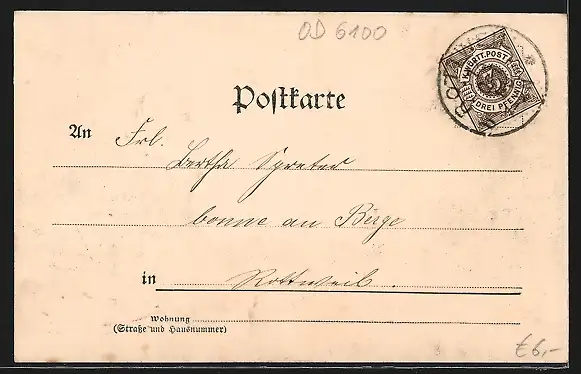 OD 6100
K. WÜRTT. POST
DREI PFENNIG
Postkarte
An Frl.
Bertha Spreter
bonne au Birge
in Rottweil.
Wohnung
(Straße und Hausnummer)
€6,-